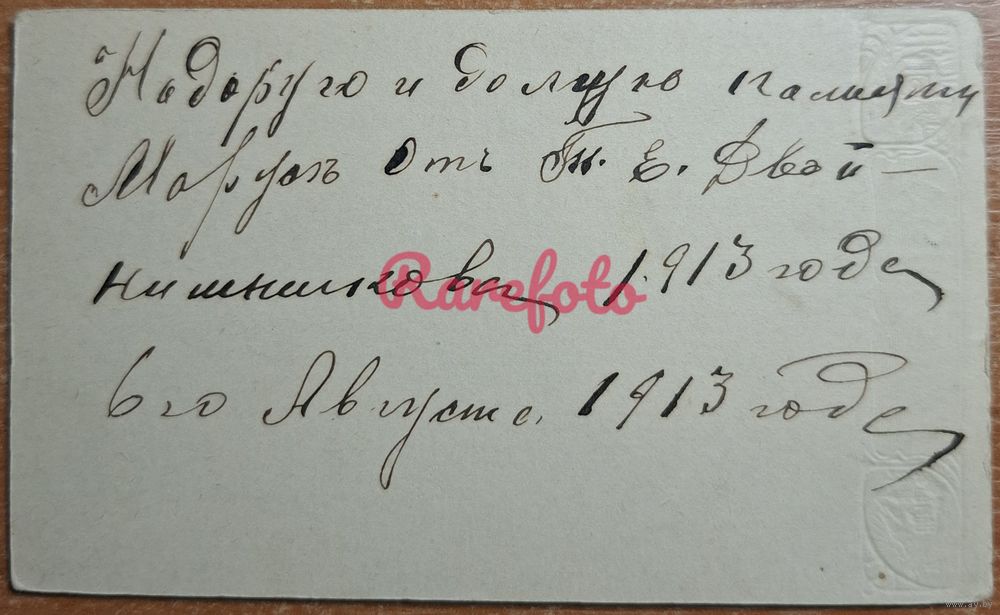 На доругую и долгую память
Марусъ отъ Т. Е. Двой-
нишникова 1913 года
6го Августа. 1913 года
Rarefoto
www.ay.by